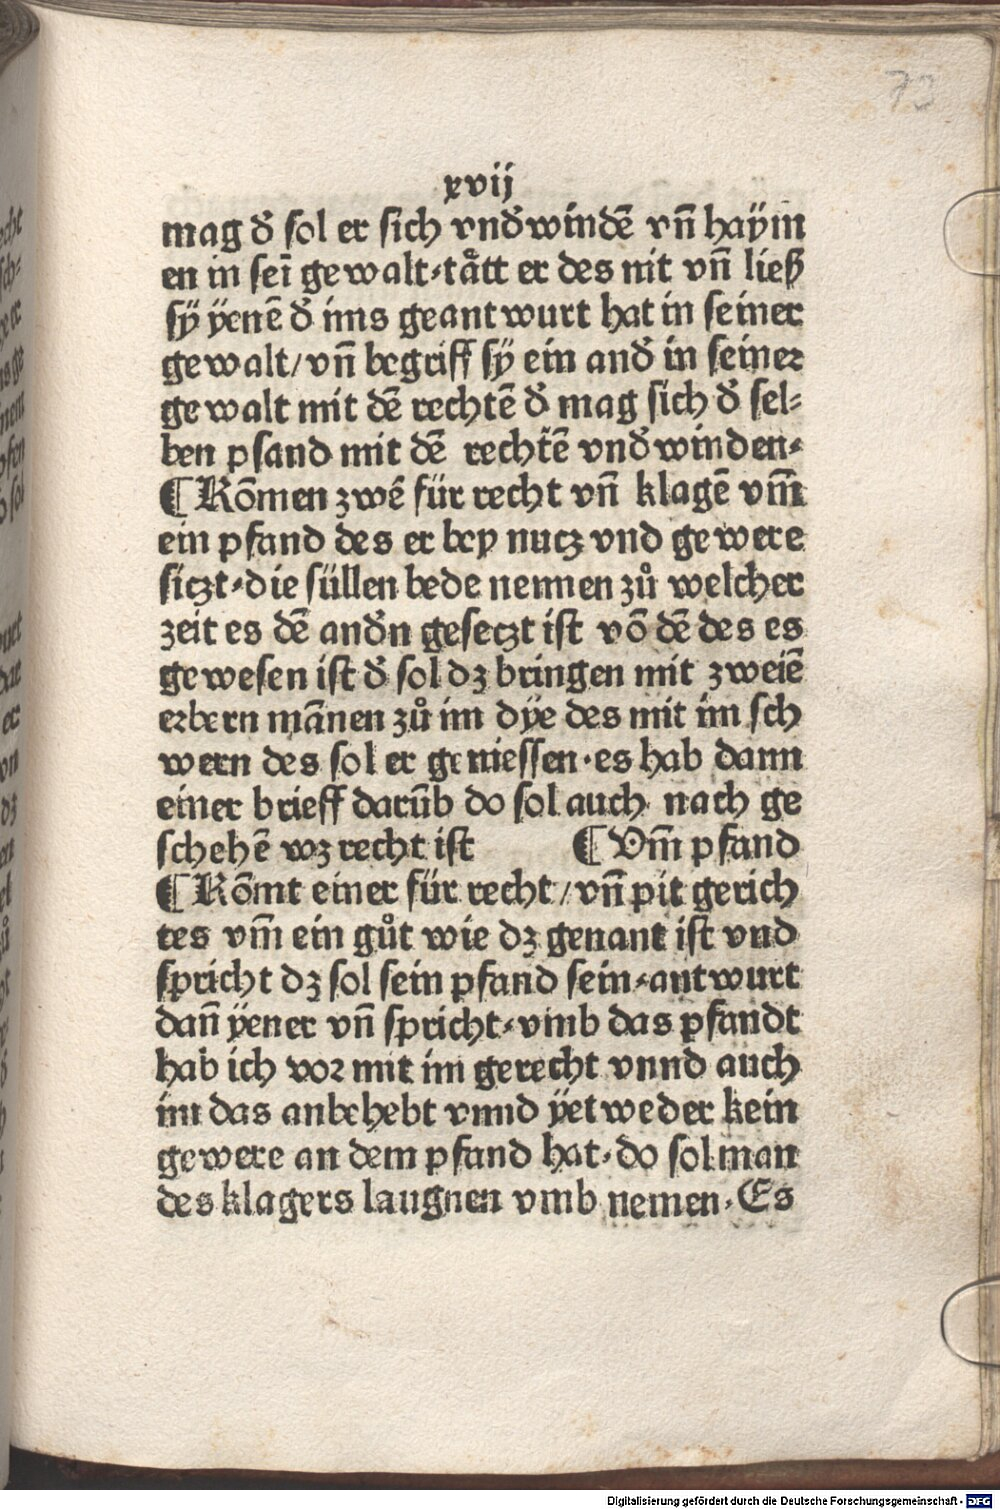 73
xvij
mag d̄ sol er sich vnd̄windē vn̄ haÿm
en in sei̅ gewalt·tått er des nit vn̄ ließ
sÿ ÿenē d̄ ims geantwurt hat in seiner
gewalt/vn̄ begriff sÿ ein and̄ in seiner
gewalt mit dē rechtē d̄ mag sich d̄ sel⸗
ben pfand mit dē rechtē vnd̄winden·
¶ Kōmen zwē für recht vn̄ klagē vm̄
ein pfand des er bey nutz vnd gewere
sitzt·die süllen bede nennen zů welcher
zeit es dē and̄n gesetzt ist vō dē des es
gewesen ist d̄ sol dz bringen mit zweiē
erbern mānen zů im dÿe des mit im sch
wern des sol er geniessen·es hab dann
einer brieff darūb do sol auch nach ge
schehē wz recht ist ¶ Vm̄ pfand
¶ Kōmt einer für recht/vn̄ pit gerich
tes vm̄ ein gůt wie dz genant ist vnd
spricht dz sol sein pfand sein·antwurt
dan̄ ÿener vn̄ spricht·vmb das pfandt
hab ich vor mit im gerecht vnnd auch
im das anbehebt vnnd ÿetweder kein
gewere an dem pfand hat·do sol man
des klagers laugnen vmb nemen·Es
Digitalisierung gefördert durch die Deutsche Forschungsgemeinschaft - DFG